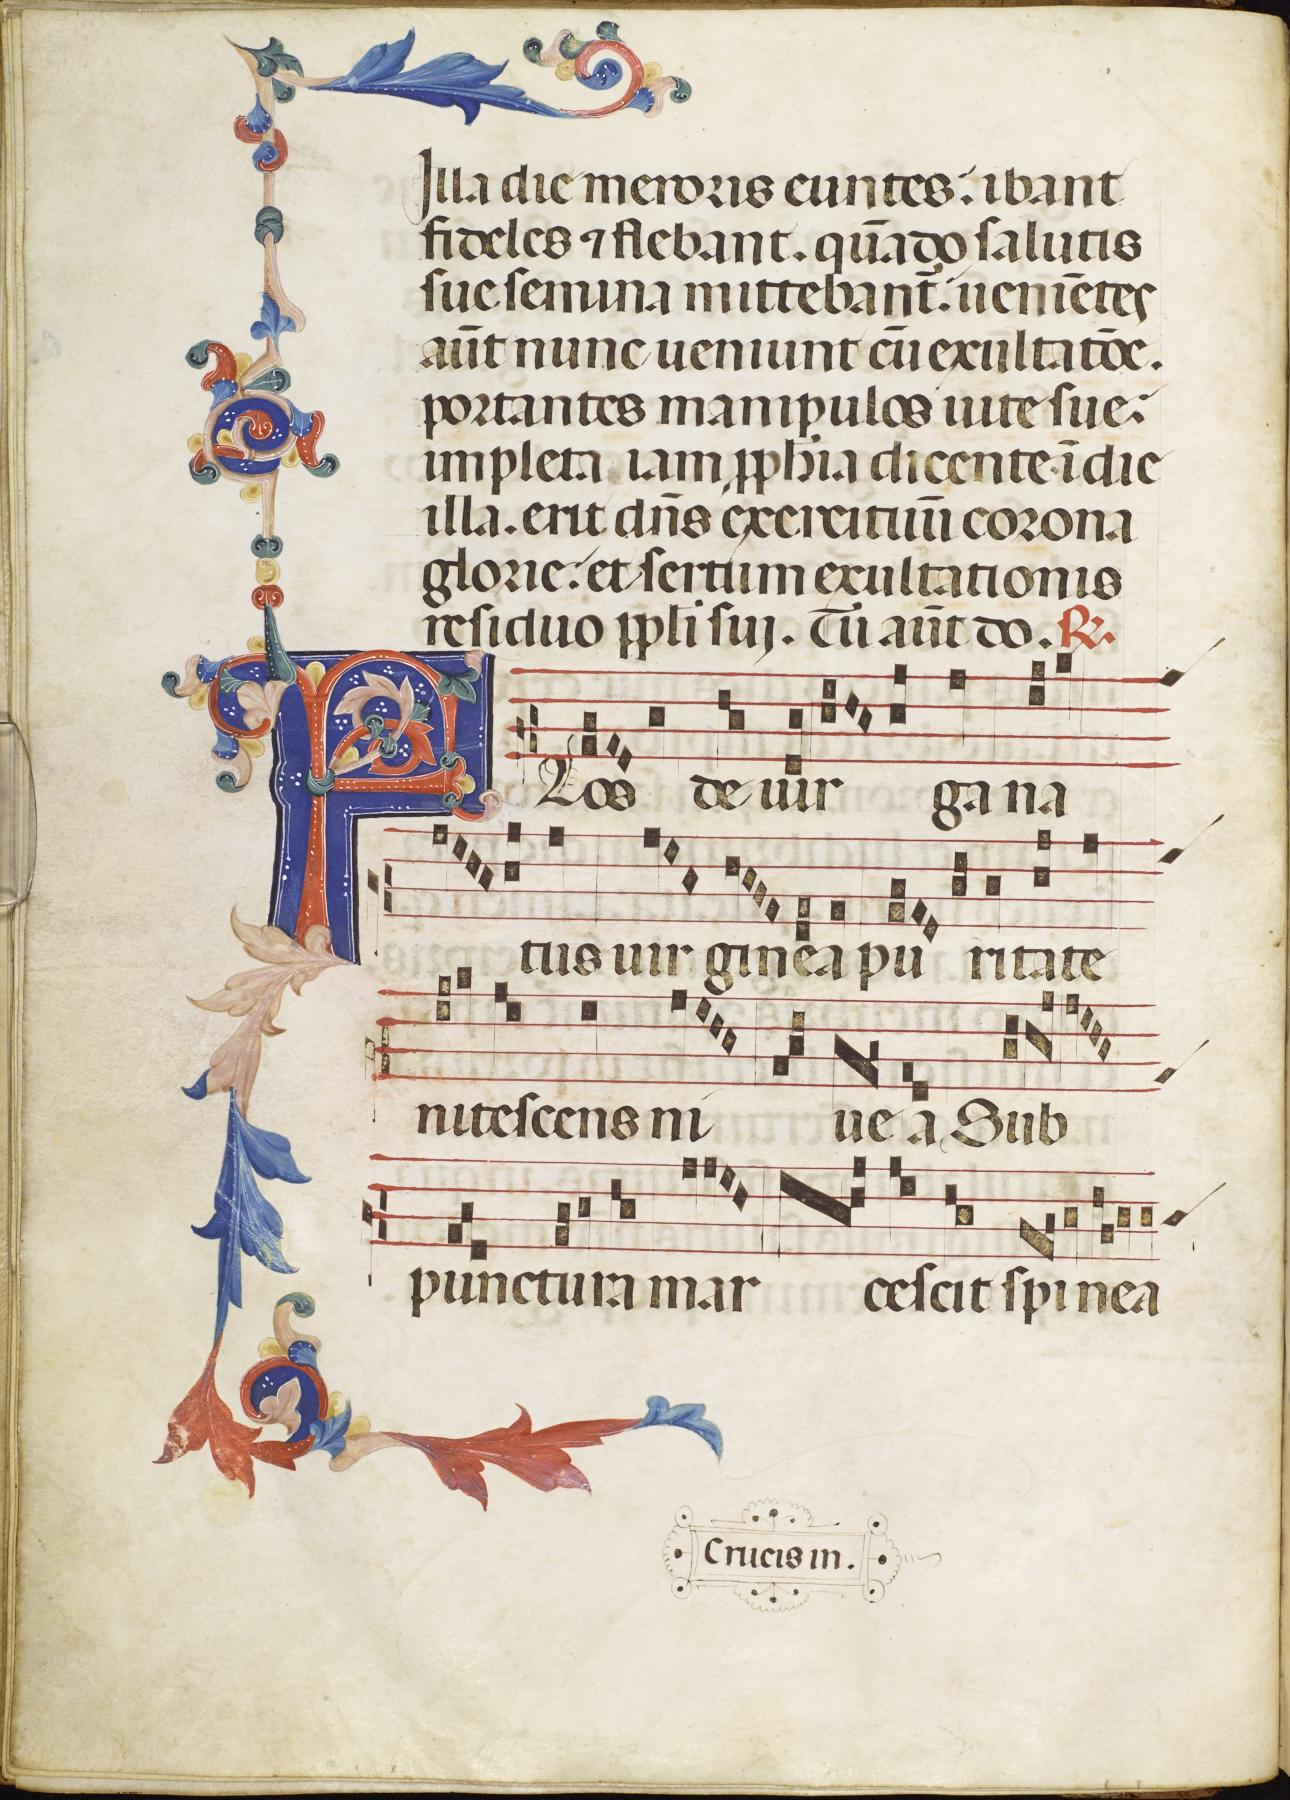 Illa die meroris euntes: ibant
fideles ⁊ flebant. quādo salutis
sue semina mittebant̄: ueniētes
aūt nunc ueniunt cū exultatōe.
portantes manipulos uite sue:
impleta iam ꝓph̄ia dicente ī die
illa. erit dn̄s exercituū corona
glorie: et sertum exultationis
residuo ppl̄i sui. Tū aūt do. ℟.
FLos de uir ga na
tus uir ginea pu ritate
nitescens ni ue a Sub
punctura mar cescit spinea
Crucis in.